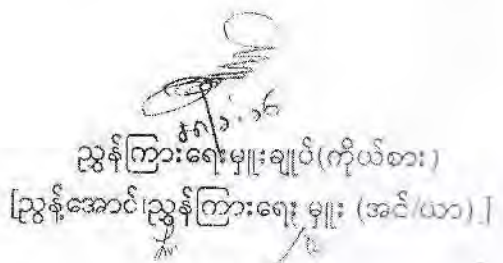 ညွှန်ကြားရေးမှူးချုပ်(ကိုယ်စား)
[ညွန့်အောင်၊ညွှန်ကြားရေး မှူး (အင်/ယာ)]